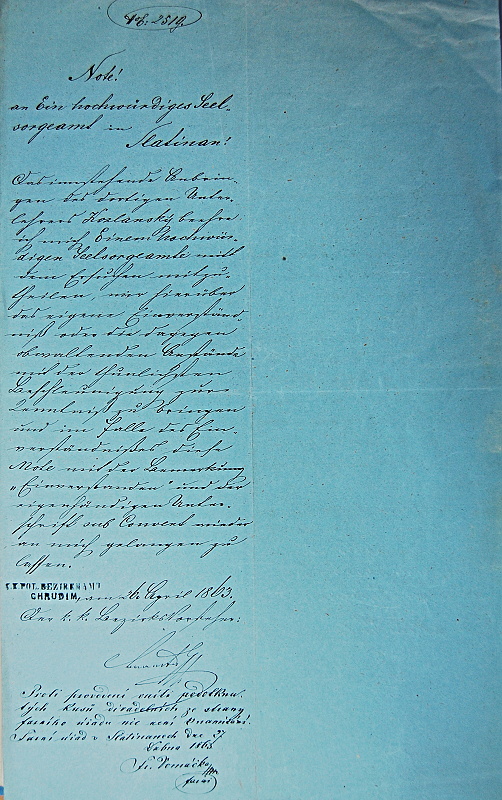 Nō: 2519.
Note!
an Ein hochwürdiges Seel-
sorgeamt in
Slatinan!
Das innstehende Anbrin-
gen des dortigen Unter-
lehrers Kozlanský beehre
ich mich Einem Hochwür-
digen Seelsorgeamte mit
dem Ersuchen mitzu-
theilen, mir hierüber
das eigene Einverständ-
niß oder die dagegen
obwaltenden Anstände
mit der thunlichsten
Beschleunigung zur
Kenntniß zu bringen
und im Falle des Ein-
verständnißes diese
Note mit der Bemerkung
"Einverstanden" und der
eigenhändigen Unter-
schrift sub Convert wieder
an mich gelangen zu
lassen.
K.K. POL. BEZIRKSAMT
CHRUDIM, am 26 April 1863.
Der k. k. Bezirksvorsteher:
Proti provození oněch podotknu-
tých kusů divadelních ze strany
farního úřadu nic není k namítání.
Farní úřad v Slatinanech dne 27
Dubna 1863
Fr. Tomáčka
farář